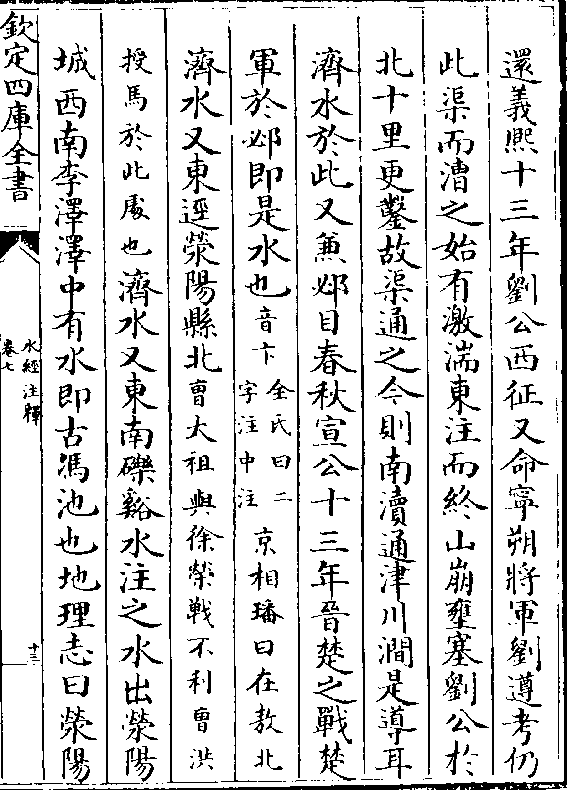 還義熙十三年劉公西征又命寧朔將軍劉遵考仍
此渠而漕之始有激湍東注而終山崩壅塞劉公於
北十里更鑿故渠通之今則南瀆通津川澗是導耳
濟水於此又兼邲目春秋宣公十三年晉楚之戰楚
軍於邲即是水也音卞全氏曰二字注中注京相璠曰在敖北
濟水又東逕滎陽縣北曹太祖與徐榮戰不利曹洪
授馬於此處也濟水又東南礫谿水注之水出滎陽
城西南李澤澤中有水即古馮池也地理志曰滎陽
欽定四庫全書
水經注釋
卷七
十三